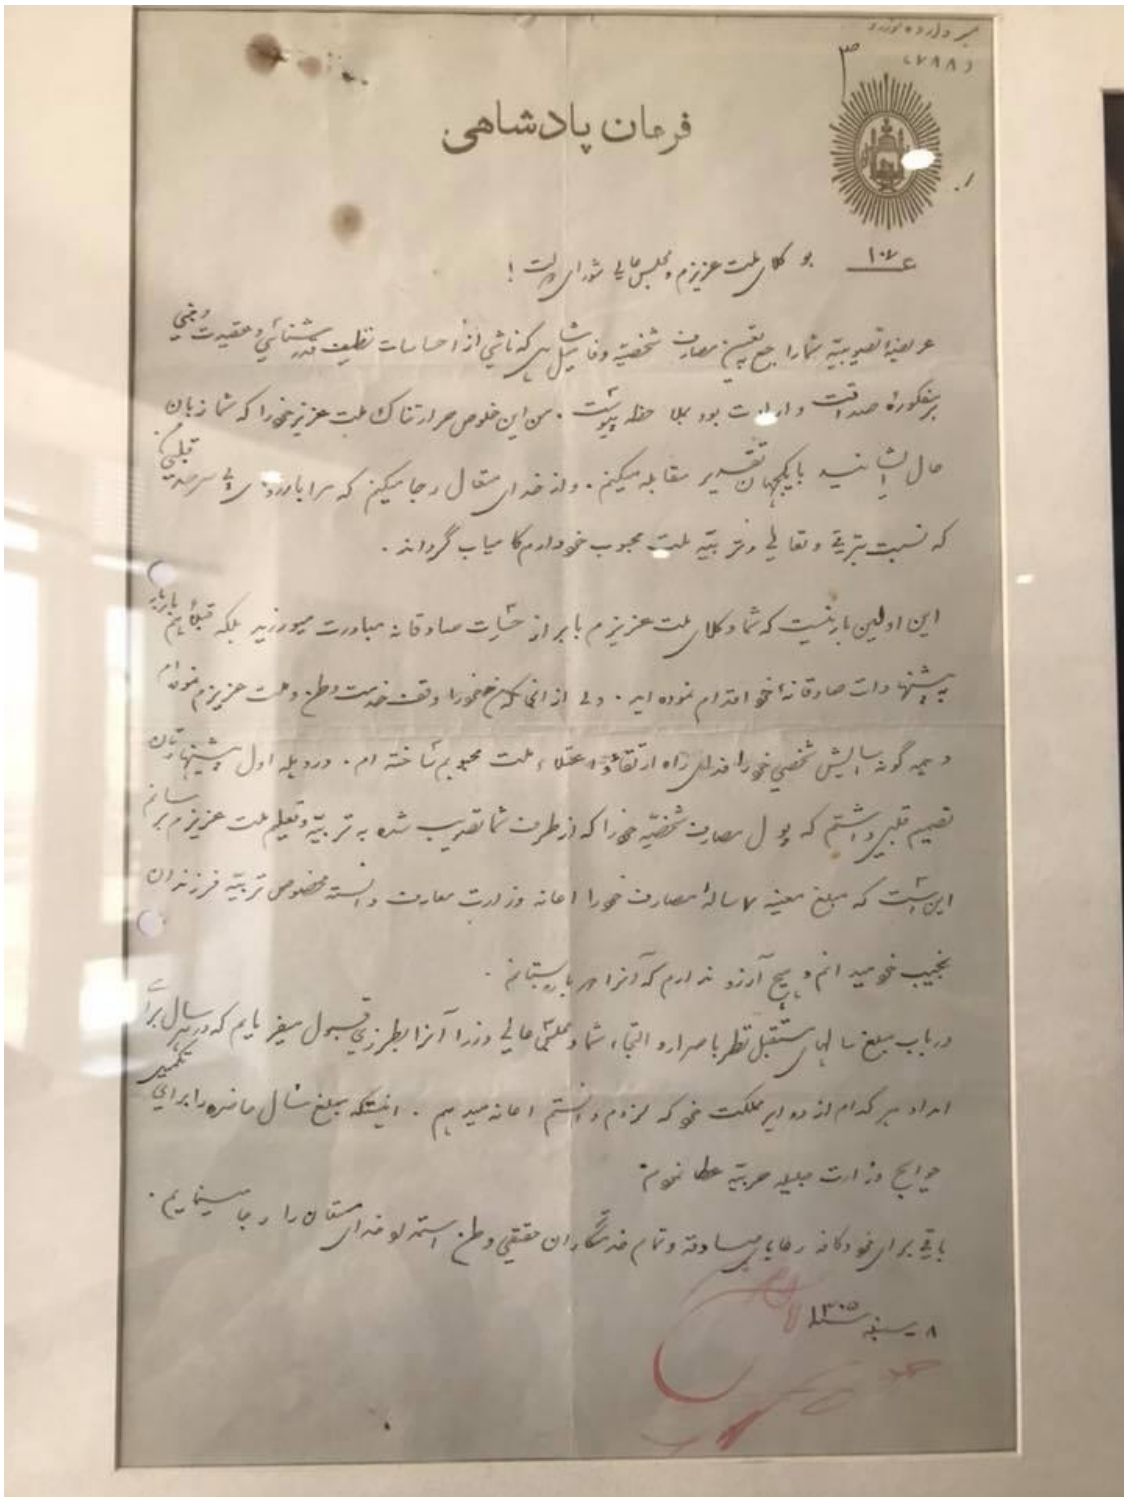 ۳
(۷۸۸)
فرمان پادشاهی
ع ۱۰۷
بوکلای ملت عزیزم و مجلس عالی شورای دولت !
عریضه تصویبیه شما راجع بتعیین مصارف شخصیه و فامیلی ام که ناشی از احساسات نظیف قدرشناسی و عقیدت و
صداقت و ارادت بود بملاحظه پیوست . من این خلوص حرارتناک ملت عزیز خود را که شما زبان
حال ایشانید با یکجهان تقدیر مقابله میکنم . و از خدای متعال رجا میکنم که مرا بارزوهای بی سرحد قلبی
که نسبت بترقی و تعالی و تربیه ملت محبوب خود دارم کامیاب گرداند .
این اولین بار نیست که شما وکلای ملت عزیزم بابراز حسیات صادقانه مبادرت میورزید بلکه قبلاً هم بار بار
به پیشنهادات صادقانه خود اقدام نموده اید . ولی از آنجا که من خود را وقف خدمت وطن و ملت عزیزم نموده ام
و همه گونه آسایش شخصی خود را فدای راه ارتقاء و اعتلاء ملت محبوبم ساخته ام . در وهله اول پیشنهاد تان
تصمیم قلبی داشتم که پول مصارف شخصیه خود را که از طرف شما تصویب شده به تربیه و تعلیم ملت عزیزم برسانم
این است که مبلغ معینه ۷ ساله مصارف خود را اعانه وزارت معارف دانسته مخصوص تربیه فرزندان
نجیب خود میدانم و هیچ آرزو ندارم که آنرا بستانم .
در باب مبلغ سالهای مستقبل نظر باصرار و التجاء شما و مجلس عالی وزرا آنرا بطرزی قبول میفرمایم که در هر سال برای
امداد هر کدام از دوایر مملکت خود که لزوم دانستم اعانه میدهم . اینست که مبلغ سال حاضره را برای تکمیل
حوایج وزارت جلیله حربیه عطا نمودم
باقی برای خود و کافه رعایای صادقه و تمام خدمتگاران حقیقی وطن از خدای متعال رجا مینمایم .
۸ سنبله ۱۳۰۵